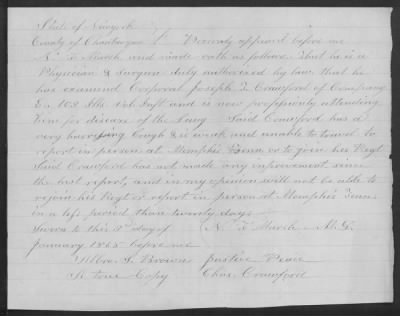 State of Newyork
County of Chautauqua Personly appeared before me
N. F. Marsh and made oath as follows. that he is a
Physician & Surgeon duly authorized by law, that he
has examined Corporal Joseph L. Crawford of Company
E. 103 Ills Vol Inft and is now professionly attending
him for disease of the Lung Said Crawford has a
very harrassing Cough & is weak and unable to travel to
report in person at Memphis Tenn or to join his Regt
Said Crawford has not made any improvement since
the last report, and in my opinion will not be able to
rejoin his Regt or report in person at Memphis Tenn
in a less period than twenty days
Sworn to this 11th day of N. F. Marsh M.D.
January 1865 before me
S. Brown Justice Peace
A true Copy Chas. Crawford